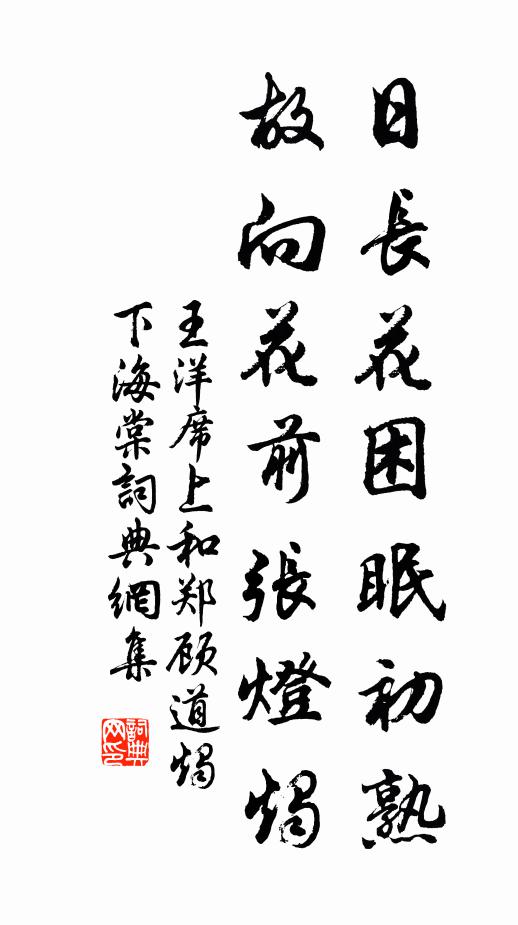 日長花困眠初熟
故向花前張燈燭
王洋席上和郑顾道燭
下海棠詞典網集
詞典網印